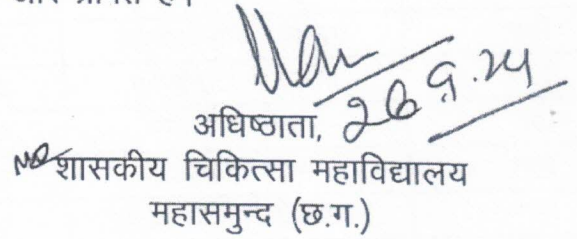 26.9.24
अधिष्ठाता,
शासकीय चिकित्सा महाविद्यालय
महासमुन्द (छ.ग.)